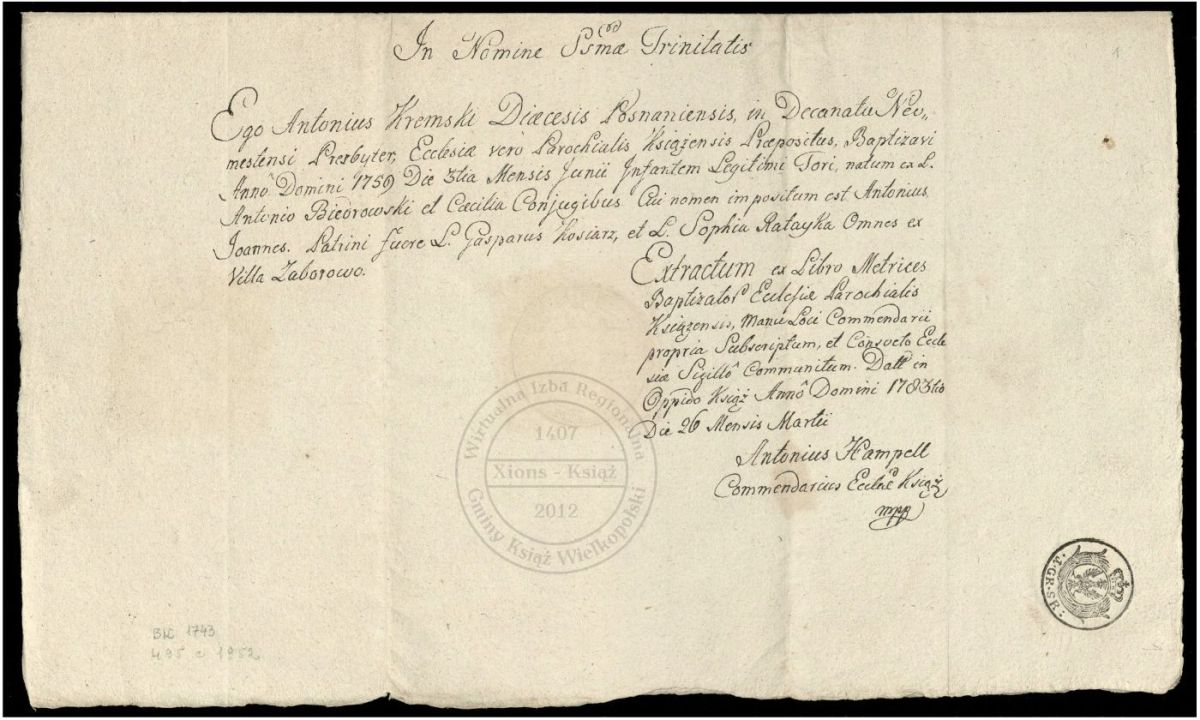 In Nomine Ssmæ Trinitatis
Ego Antonius Kremski Diæcesis Posnaniensis, in Decanatu Neo„
mestensi Presbyter, Ecclesiæ verò Parochialis Książensis Præpositus, Baptizavi
Annô Domini 1759 Die 3tia Mensis Junii Infantem Legitimi Tori, natum ex L.
Antonio Biedrowski et Cæcilia Conjugibus Cui nomen impositum est Antonius
Joannes. Patrini fuere L. Gasparus Kosiarz, et L. Sophia Ratayka Omnes ex
Villa Zaborowo.
Extractum ex Libro Metrices
Baptizator Ecclesiæ Parochialis
Książensis, Manu Loci Commendarii
propria Subscriptum, et Consveto Eccle
siæ Sigillô Communitum. Datt in
Oppido Książ Annô Domini 1783tio
Die 26 Mensis Martii
Antonius Hampelt
Commendarius Ecclæ Książ
mpp
Wirtualna Izba Regionalna
1407
Xions - Książ
2012
Gminy Książ Wielkopolski
J·GR·SR:
BK 1743
495 c 1952
1